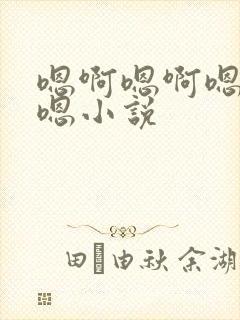 嗯啊嗯啊嗯
嗯小说
田由秋余湖